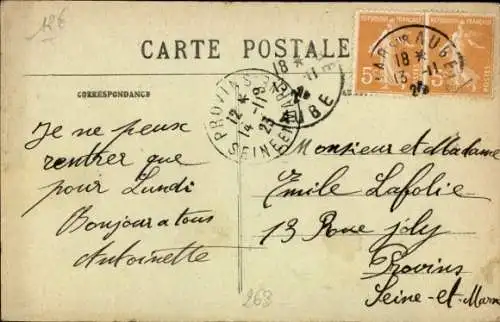 12€
CARTE POSTALE
CORRESPONDANCE
REPUBLIQUE FRANÇAISE
5c
5c
BAR SUR AUBE
18 *
13 - 11
AUBE
PROVINS
12 *
14 - 11
23
SEINE ET MARNE
Je ne peux
rentrer que
pour Lundi
Bonjour a tous
Antoinette
Monsieur et Madame
Emile Lafolie
13 Rue joly
Provins
Seine-et-Marn
263